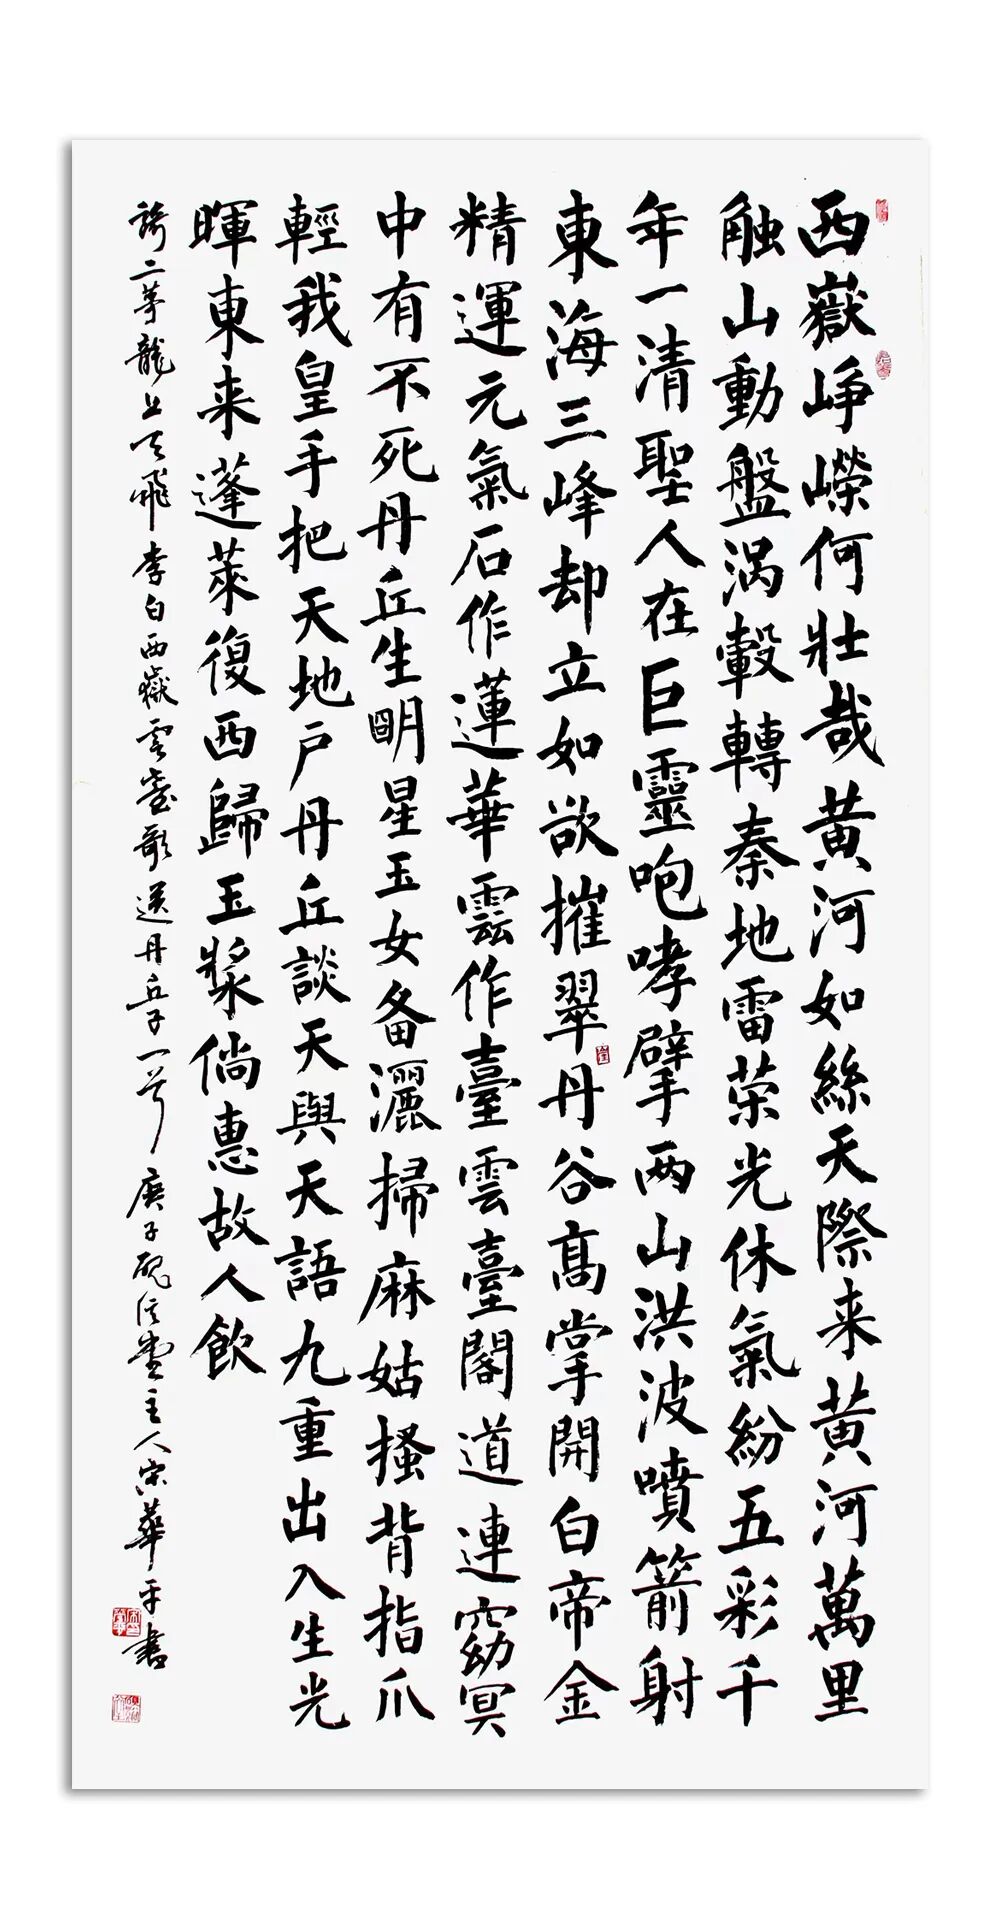 西嶽崢嶸何壯哉黃河如絲天際来黃河萬里
触山動盤涡轂轉秦地雷荣光休氣紛五彩千
年一清聖人在巨靈咆哮擘两山洪波噴箭射
東海三峰却立如欲摧翠丹谷髙掌開白帝金
精運元氣石作蓮華雲作臺雲臺閣道連窈冥
中有不死丹丘生明星玉女备灑掃麻姑搔背指爪
輕我皇手把天地户丹丘談天與天語九重出入生光
暉東来蓬萊復西歸玉漿倘惠故人飲
騎二茅龍上天飛 李白西嶽雲臺歌送丹丘子一首 庚子 主人宋華平書